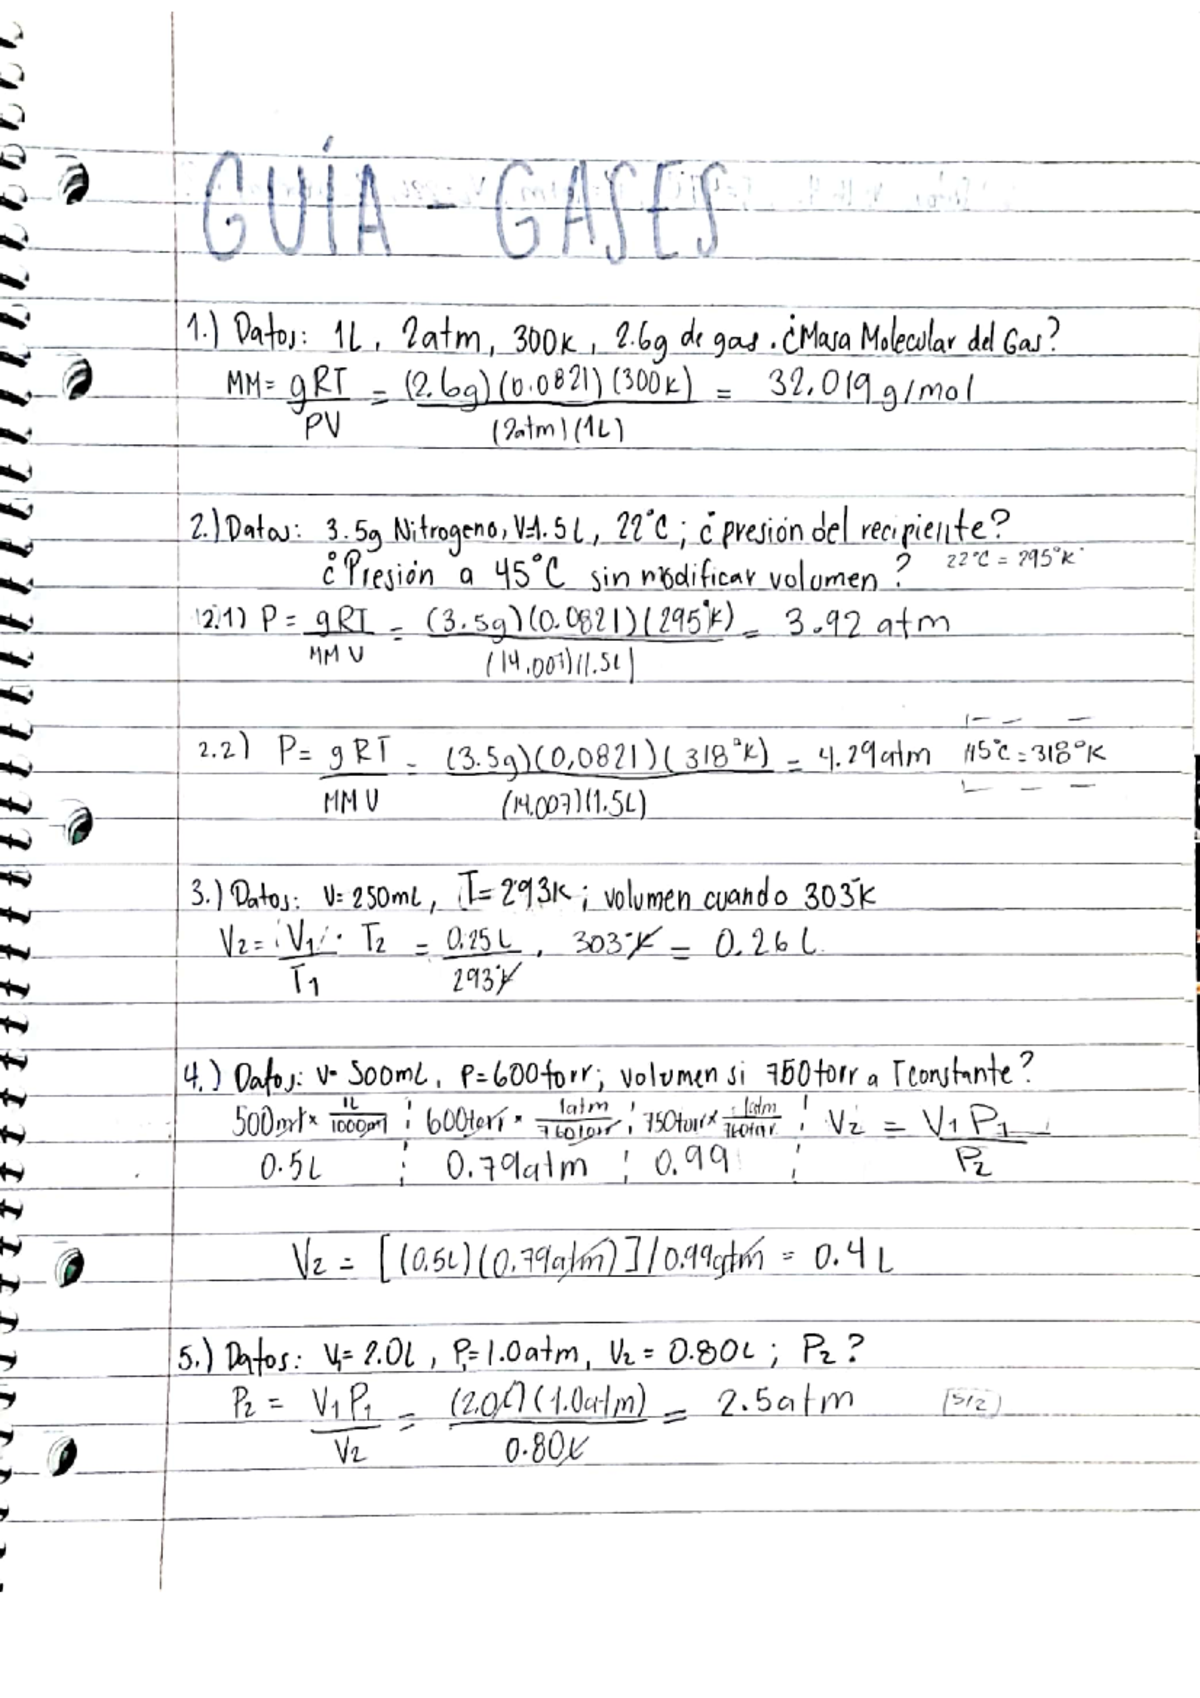 GUÍA - GASES
1.) Datos: 1L, 2atm, 300K, 2.6g de gas. ¿Masa Molecular del Gas?
MM = gRT / PV = (2.6g)(0.0821)(300K) / (2atm)(1L) = 32.019 g/mol
2.) Datos: 3.5g Nitrogeno, V=1.5L, 22°C; ¿presión del recipiente?
¿Presión a 45°C sin modificar volumen? 22°C = 295°K
2.1) P = gRT / MM V = (3.5g)(0.0821)(295°K) / (14.007)(1.5L) = 3.92 atm
2.2) P = gRT / MM V = (3.5g)(0,0821)(318°K) / (14.007)(1.5L) = 4.29atm 45°C = 318°K
3.) Datos: V= 250mL, T= 293K; volumen cuando 303°K
V2 = V1 / T1 · T2 = 0.25L / 293°K . 303°K = 0.26 L.
4.) Datos: V= 500mL, P=600torr; volumen si 750torr a Tconstante?
500ml x 1L / 1000ml ¦ 600torr x 1atm / 760torr ¦ 750torr x 1atm / 760torr ¦ V2 = V1 P1 / P2
0.5L ¦ 0.79atm ¦ 0.99 ¦
V2 = [(0.5L)(0.79atm)]/0.99atm = 0.4L
5.) Datos: V1= 2.0L, P1=1.0atm, V2 = 0.80L; P2?
P2 = V1 P1 / V2 = (2.0L)(1.0atm) / 0.80L = 2.5atm (5/2)